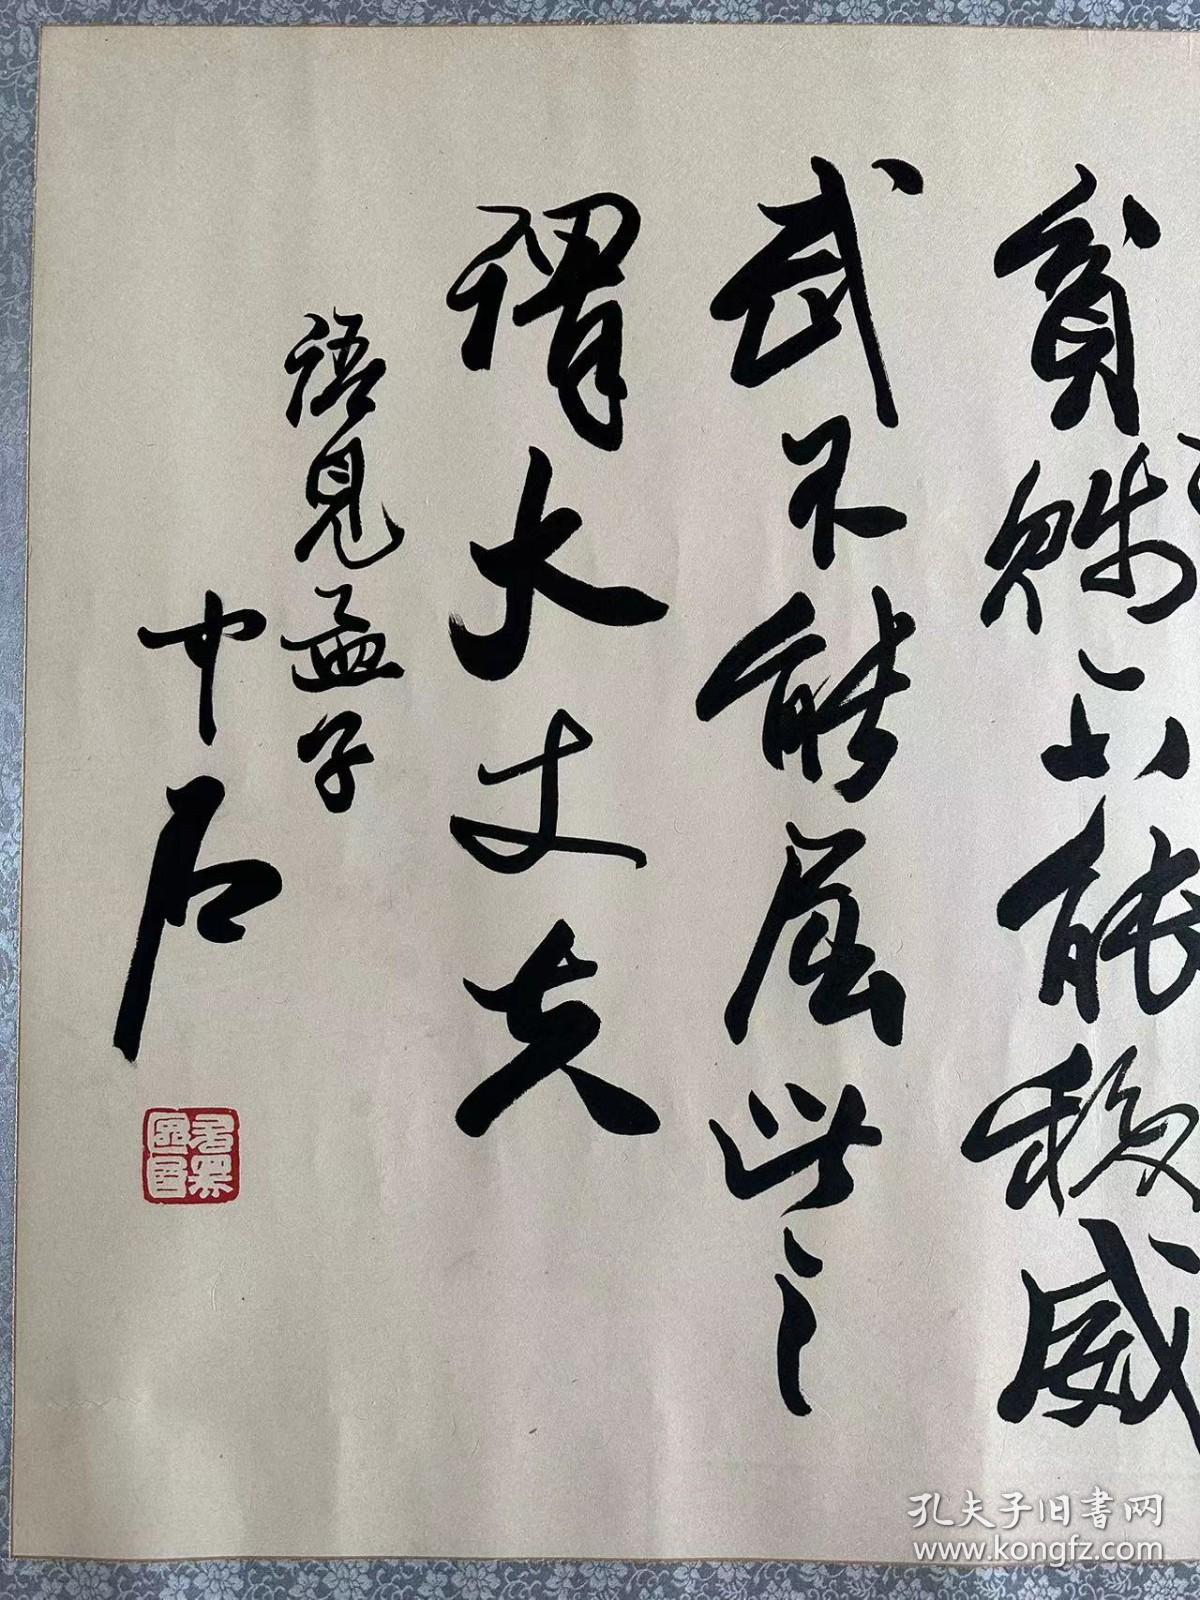 貧賤不能移威
武不能屈此之
謂大丈夫
語見孟子
中石
孔夫子旧书网
www.kongfz.com